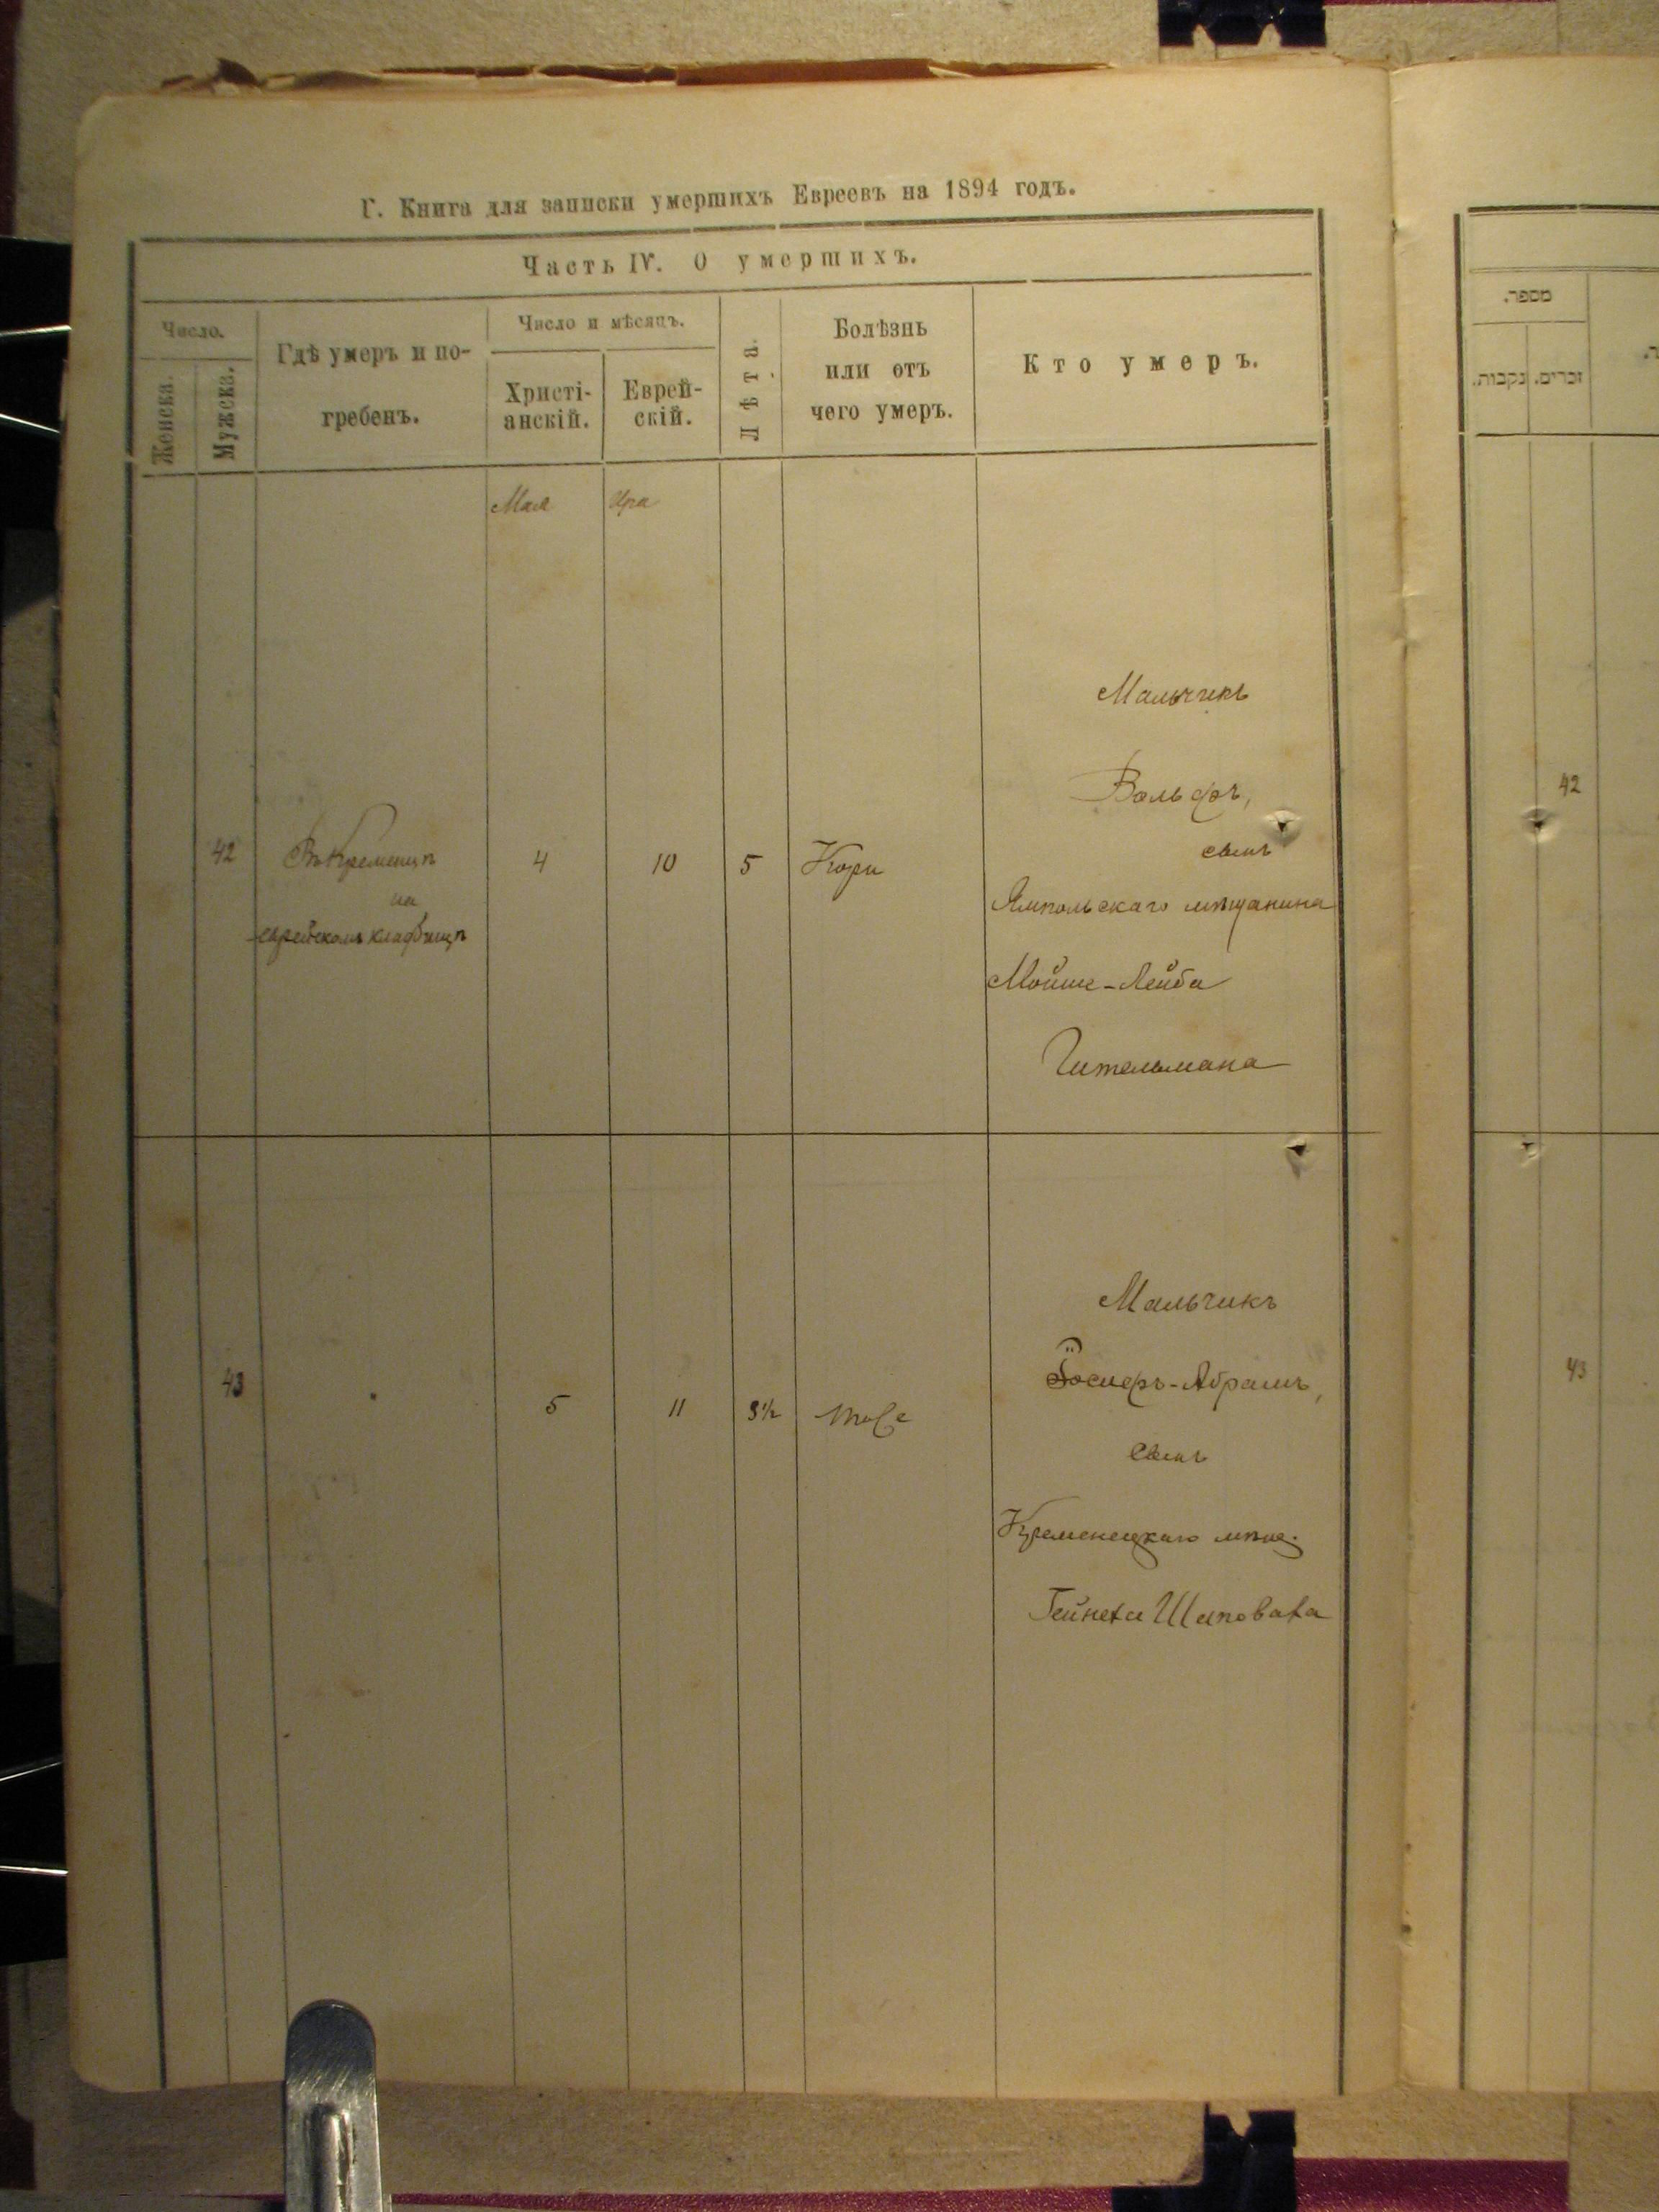 Г. Книга для записки умершихъ Евреевъ на 1894 годъ.
Часть IV. О умершихъ.
Число.
Женска.
Мужска.
Гдѣ умеръ и по-
гребенъ.
Число и мѣсяцъ.
Христі-
анскій.
Еврей-
скій.
Лѣта.
Болѣзнь
или отъ
чего умеръ.
Кто умеръ.
Мая
Ира
42
Въ Кременцѣ
на
еврейскомъ кладбищѣ
4
10
5
Кори
Мальчикъ
Вольфъ,
сынъ
Ямпольскаго мѣщанина
Мойше-Лейба
Гительмана
43
5
11
3½
тоже
Мальчикъ
Іосифъ-Абрамъ,
сынъ
Кременецкаго мѣщ.
Гейнеха Шаповала
מספר.
זכרים.
נקבות.
42
43